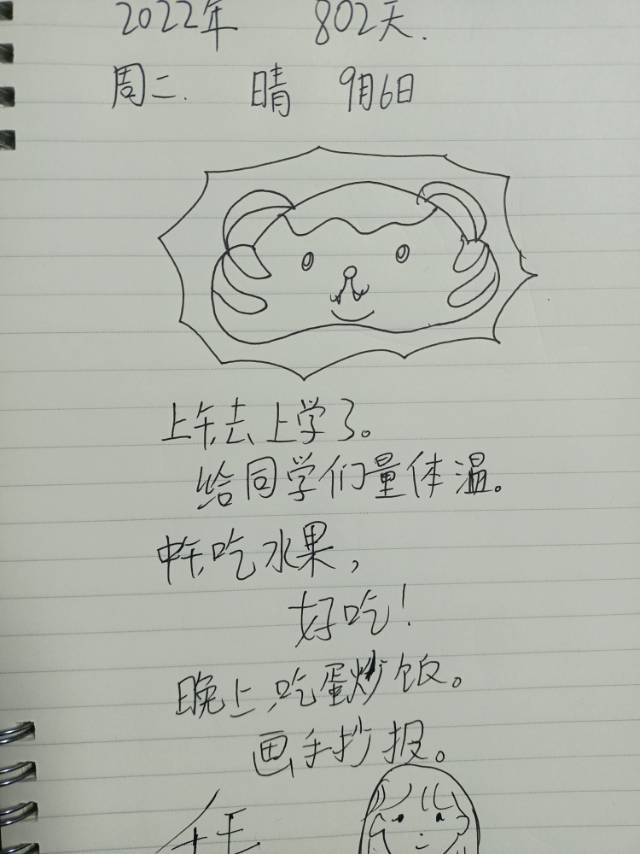 2022年 802天.
周二. 晴 9月6日
上午去上学了。
给同学们量体温。
中午吃水果，
好吃！
晚上,吃蛋炒饭。
画手抄报。